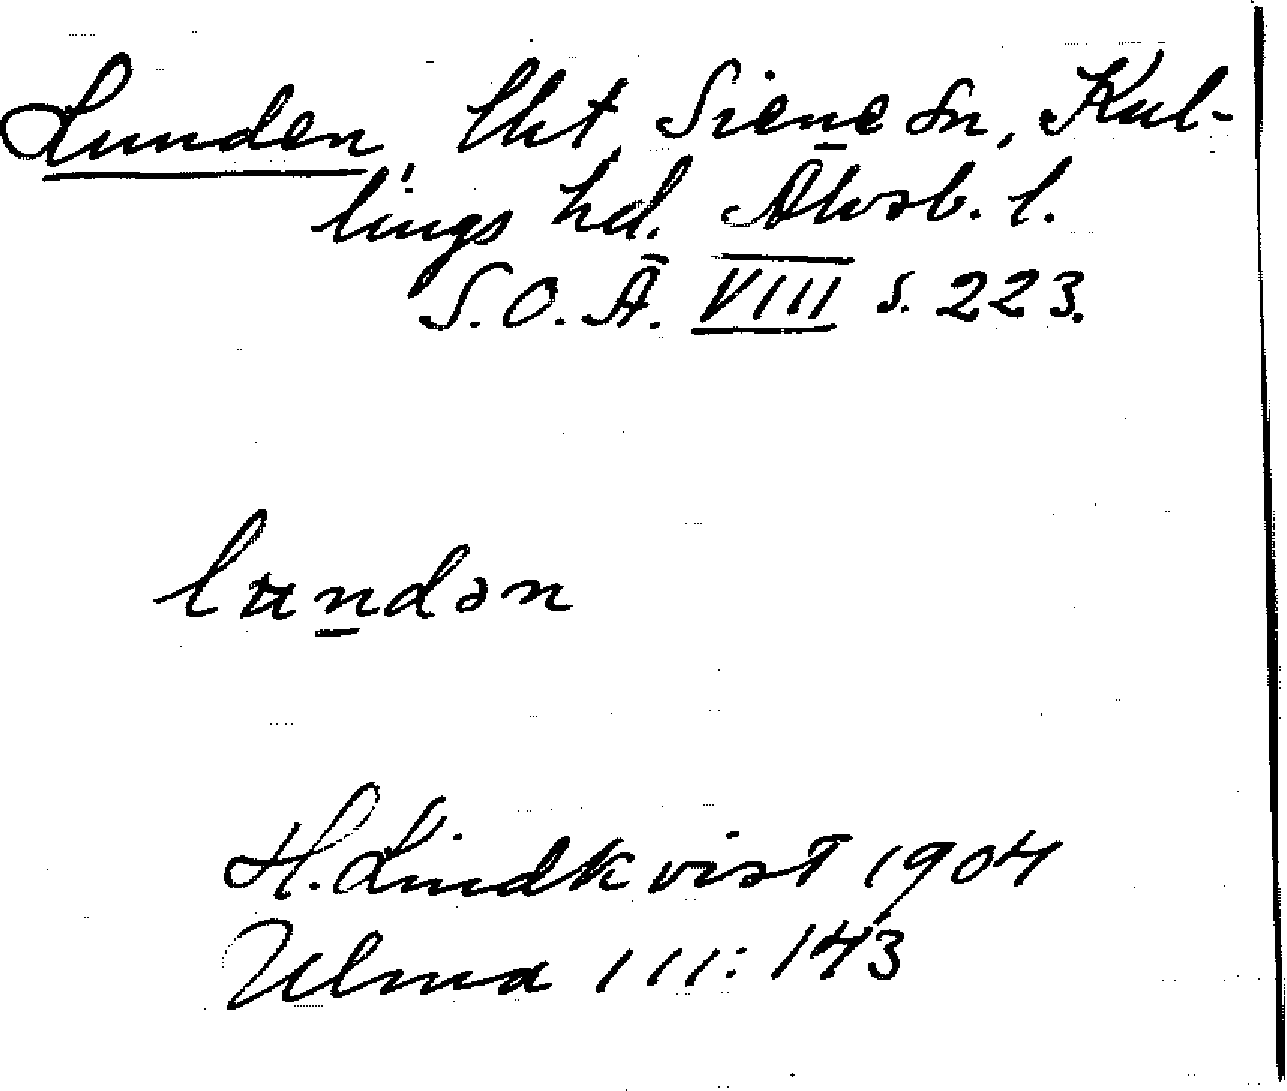 Lunden, lht, Siene sn, Kul-
lings hd. Älvsb. l.
S.O.Ä. VIII s. 223.
lundən
H. Lindkvist 1904
Ulma 111:143